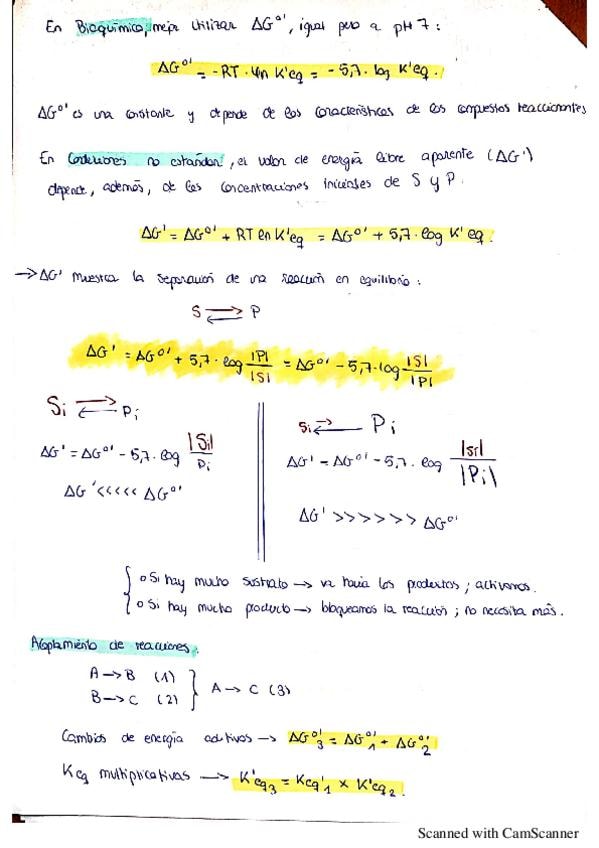 En Bioquímica, mejor utilizar ΔG°', igual pero a pH 7:
ΔG°' = -RT · ln K'eq = -5,7 · log K'eq.
ΔG°' es una constante y depende de las características de los compuestos reaccionantes
En condiciones no estándar, el valor de energía libre aparente (ΔG')
depende, además, de las concentraciones iniciales de S y P.
ΔG' = ΔG°' + RT ln K'eq = ΔG°' + 5,7 · log K'eq.
→ ΔG' muestra la separación de una reacción en equilibrio:
S ⇌ P
ΔG' = ΔG°' + 5,7 · log |P|/|S| = ΔG°' - 5,7 · log |S|/|P|
Si ⇌ Pi
ΔG' = ΔG°' - 5,7 · log |Si|/Pi
ΔG' <<<<< ΔG°'
Si ⇌ Pi
ΔG' = ΔG°' - 5,7 · log |Si|/|Pi|
ΔG' >>>>>> ΔG°'
o Si hay mucho sustrato → va hacia los productos; activamos.
o Si hay mucho producto → bloqueamos la reacción; no necesita más.
Acoplamiento de reacciones.
A → B (1)
B → C (2)
A → C (3)
Cambios de energía aditivos → ΔG°'3 = ΔG°'1 + ΔG°'2
Keq multiplicativas → K'eq3 = Keq'1 x K'eq2.
Scanned with CamScanner